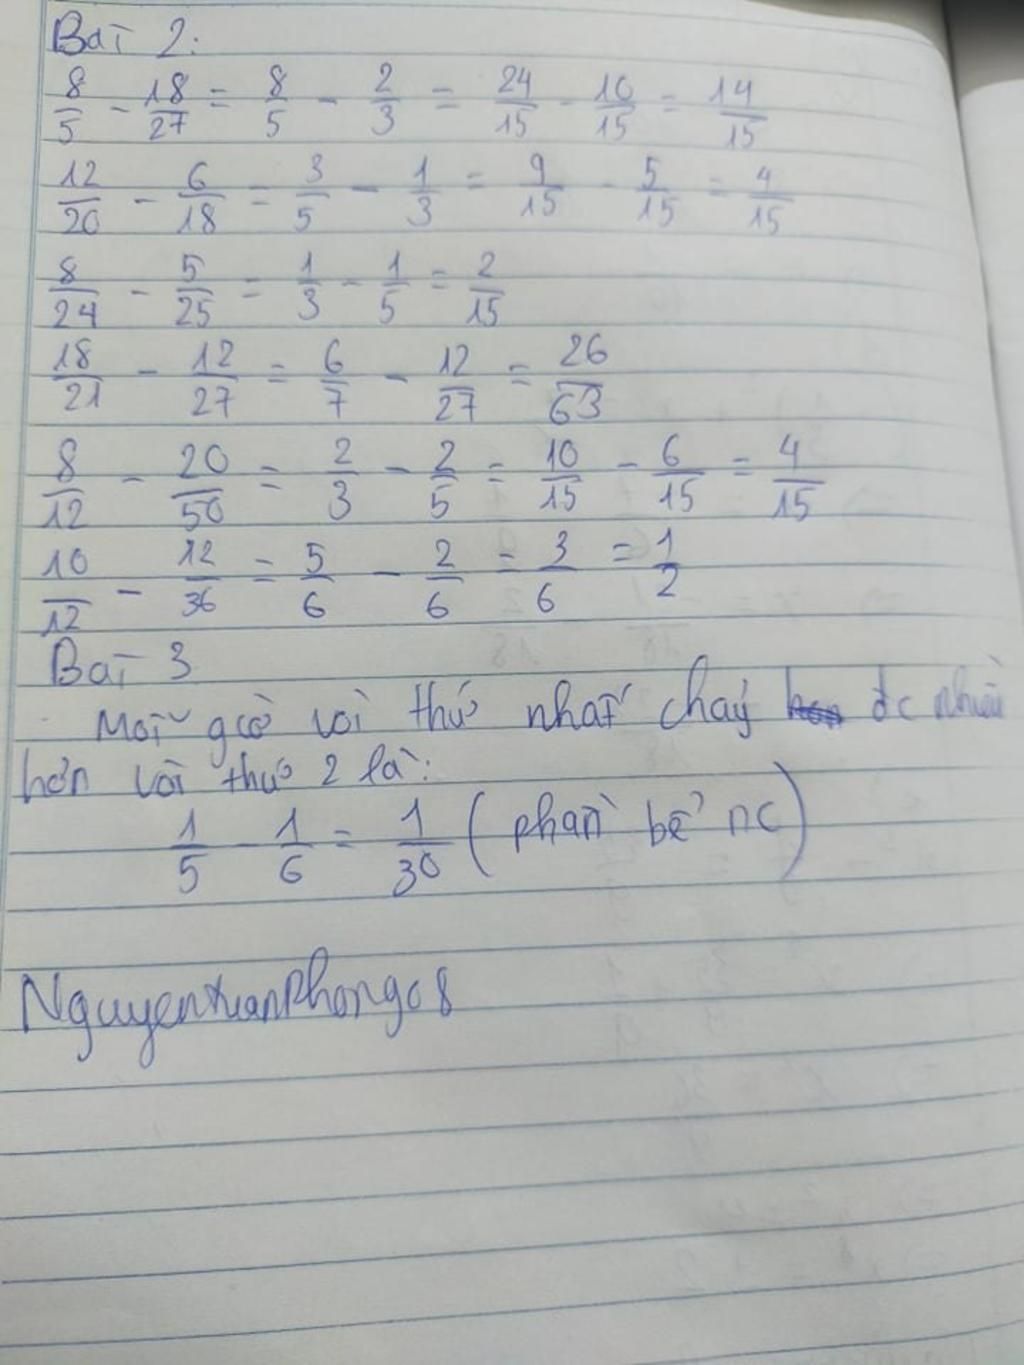 Bài 2:
8/5 - 18/27 = 8/5 - 2/3 = 24/15 - 10/15 = 14/15
12/20 - 6/18 = 3/5 - 1/3 = 9/15 - 5/15 = 4/15
8/24 - 5/25 = 1/3 - 1/5 = 2/15
18/21 - 12/27 = 6/7 - 12/27 = 26/63
8/12 - 20/50 = 2/3 - 2/5 = 10/15 - 6/15 = 4/15
10/12 - 12/36 = 5/6 - 2/6 = 3/6 = 1/2
Bài 3
Mỗi giờ vòi thứ nhất chảy đc nhiều
hơn vòi thứ 2 là:
1/5 - 1/6 = 1/30 (phần bể nc)
NguyenxuanPhong08